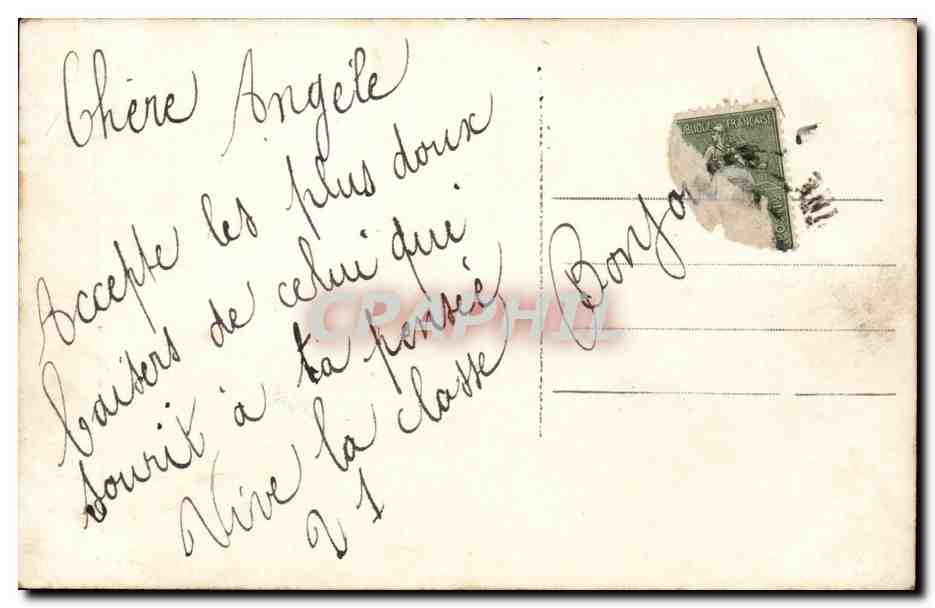 Chère Angèle
Accepte les plus doux
baisers de celui qui
sourit à ta pensée
Vive la classe
21
Bonjo
FRANÇAISE
CPAPHIL